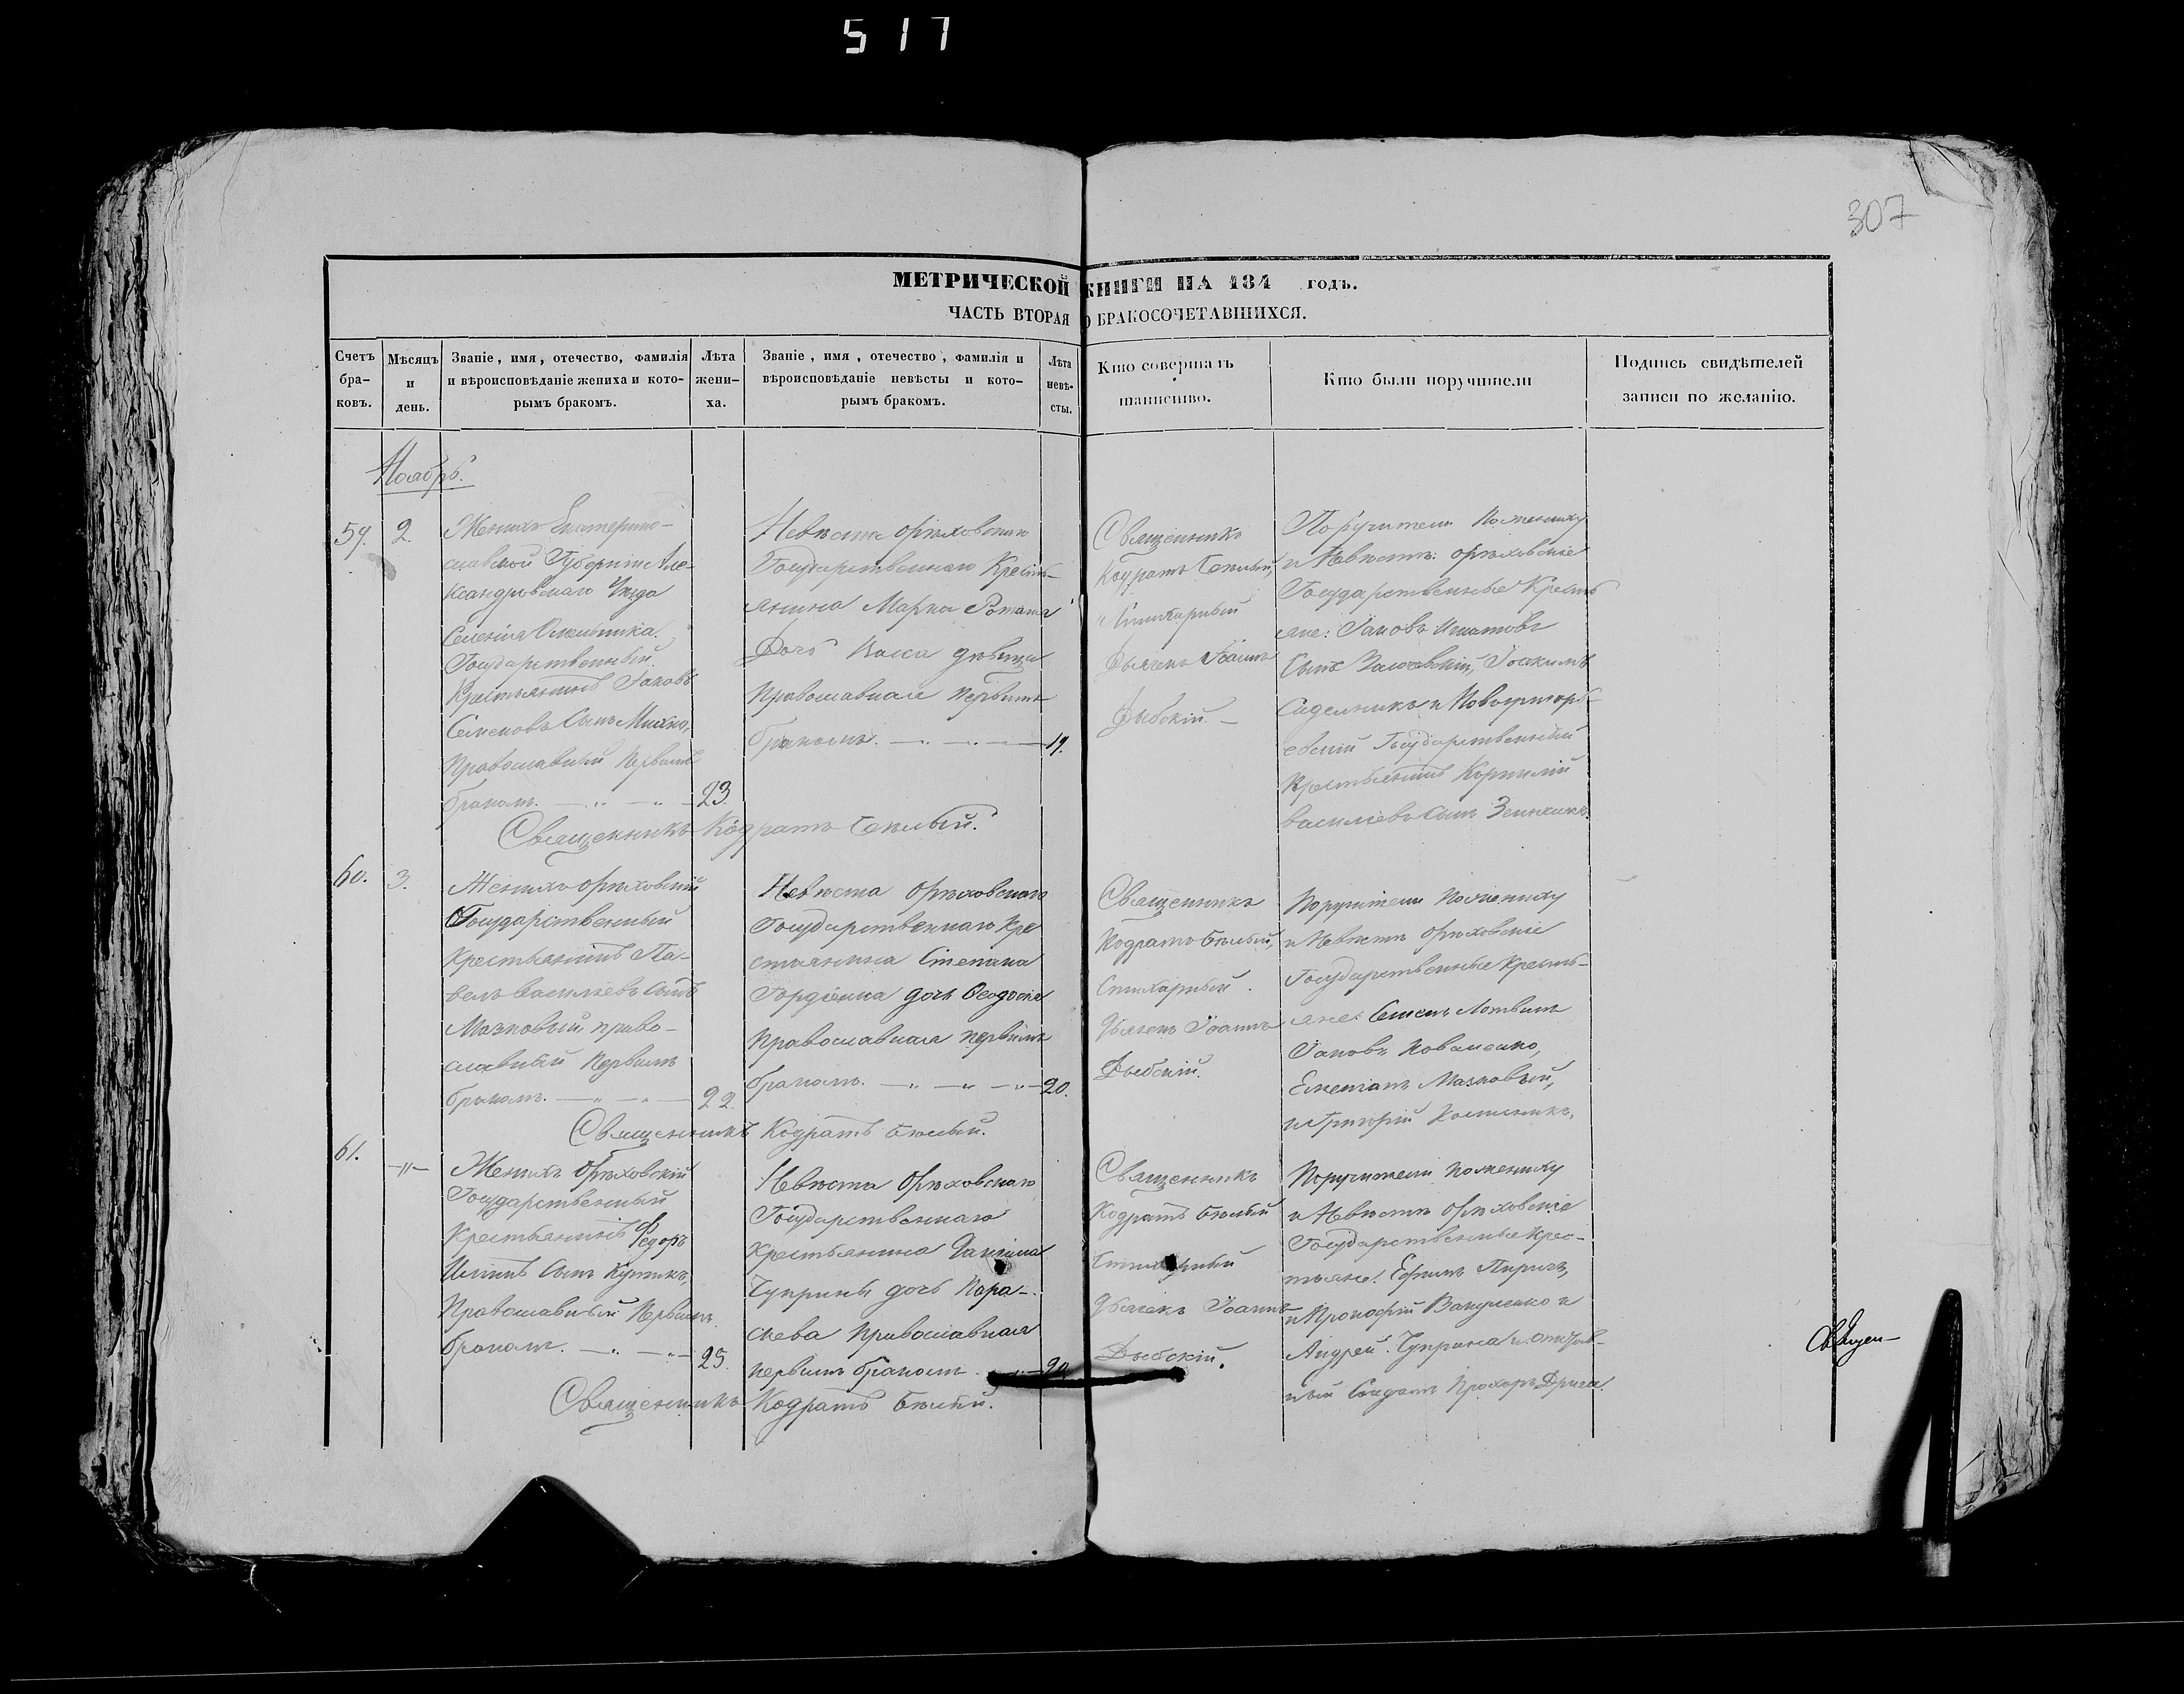 517
307
МЕТРИЧЕСКОЙ КНИГИ НА 184 годъ.
ЧАСТЬ ВТОРАЯ О БРАКОСОЧЕТАВШИХСЯ.
Счетъ бра-ковъ.
Мѣсяцъ и день.
Званіе, имя, отечество, фамилія
и вѣроисповѣданіе жениха и кото-
рымъ бракомъ.
Лѣта жени-ха.
Званіе, имя, отечество, фамилія и
вѣроисповѣданіе невѣсты и кото-
рымъ бракомъ.
Лѣта невѣ-сты.
Кто совершалъ
таинство.
Кто были поручители
Подпись свидѣтелей
записи по желанію.
Ноябрь.
59. 2.
Женихъ Екатерино-
славской Губерніи Але-
ксандровскаго Уѣзда
Селенія Омельника
Государственный
Крестьянинъ Іаковъ
Семеновъ Сынъ Михно,
Православный первымъ
бракомъ. 23.
Невѣста Орѣховскаго
Государственнаго Кресть-
янина Марка
Дочь Васса дѣвица
Православная первымъ
бракомъ. 19.
Священникъ
Кодратъ Бѣлый,
Стихарный
Дьячекъ Іоаннъ
Дыбскій.
Поручители по жениху
и Невѣстѣ: Орѣховскіе
Государственные Кресть
яне: Іаковъ Игнатовъ
Сынъ Іоакимъ
и Новогригорь-
евскій Государственный
Крестьянинъ Корнилій
Васильевъ Сынъ
Священникъ Кодратъ Бѣлый.
60. 3.
Женихъ Орѣховскій
Государственный
Крестьянинъ Па-
велъ Васильевъ Сынъ
Мазковый, право-
славный первымъ
бракомъ. 22.
Невѣста Орѣховскаго
Государственнаго Кре
стьянина Степана
Гордіенка дочь Феодосія
Православная первымъ
бракомъ. 20.
Священникъ
Кодратъ Бѣлый,
Стихарный
Дьячекъ Іоаннъ
Дыбскій.
Поручители по жениху
и Невѣстѣ Орѣховскіе
Государственные Кресть-
яне: Семенъ
Іаковъ Коваленко,
Емельянъ Мазковый,
и Григорій
Священникъ Кодратъ Бѣлый.
61. -"-
Женихъ Орѣховскій
Государственный
Крестьянинъ Федоръ
Ильинъ Сынъ
Православный Первымъ
бракомъ. 25.
Невѣста Орѣховскаго
Государственнаго
Крестьянина Даніила
Чуприны дочь Пара-
скева Православная
первымъ бракомъ 20.
Священникъ
Кодратъ Бѣлый
Стихарный
Дьячекъ Іоаннъ
Дыбскій.
Поручители по жениху
и Невѣстѣ Орѣховскіе
Государственные Крес-
тьяне: Ефимъ Пиригъ,
и Прокофій Вакуленко и
Андрей Чуприна и отстав-
ный Солдатъ Прохоръ
Священникъ Кодратъ Бѣлый.
Священ-